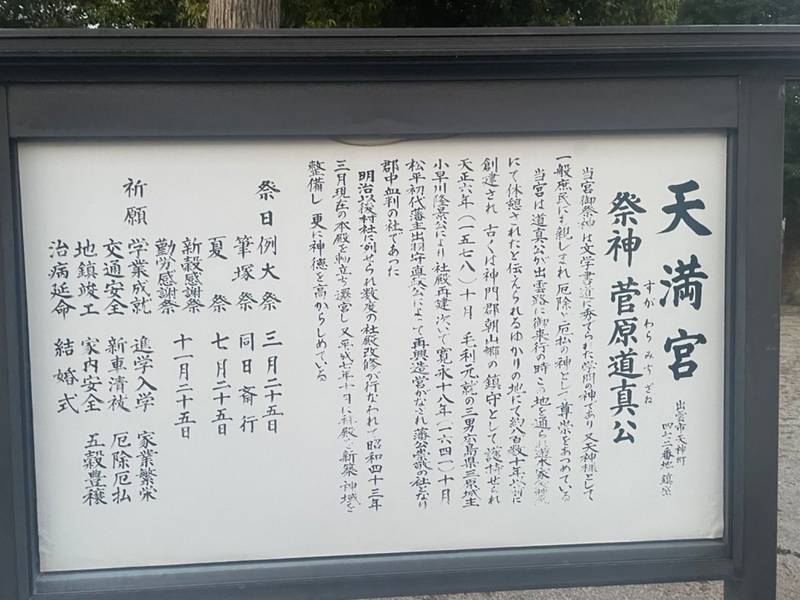 天満宮
出雲市天神町
四七二番地鎮祭
祭神 菅原道真公
すがわらみちざね
当宮御祭神は文学書道に秀でられた学問の神であり又天神様として
一般庶民にも親しまれ厄除け厄払の神として尊崇をあつめている
当宮は道真公が出雲路に御来行の時この地を通られ
にて休憩されたと伝えられるゆかりの地にて約八百数十年以前に
創建され 古くは神門郡朝山郷の鎮守として護持せられ
天正六年(一五七八)十月 毛利元就の三男広島県三原城主
小早川隆景公により社殿再建次いで寛永十八年(一六四一)十月
松平初代藩主出羽守直政公によって再興造営がなされ藩公崇敬の社となり
郡中の社であった
明治以後村社に列せられ数度の社殿改修が行なわれて昭和四十三年
三月現在の本殿を物立ち遷宮し又平成七年十月に拝殿を新築神域を
整備し 更に神徳を高からしめている
祭日 例大祭 三月二十五日
筆塚祭 同日斎行
夏祭 七月二十五日
新穀感謝祭
勤労感謝祭 十一月二十五日
祈願 学業成就 進学入学 家業繁栄
交通安全 新車清祓 厄除厄払
地鎮竣工 家内安全 五穀豊穣
治病延命 結婚式